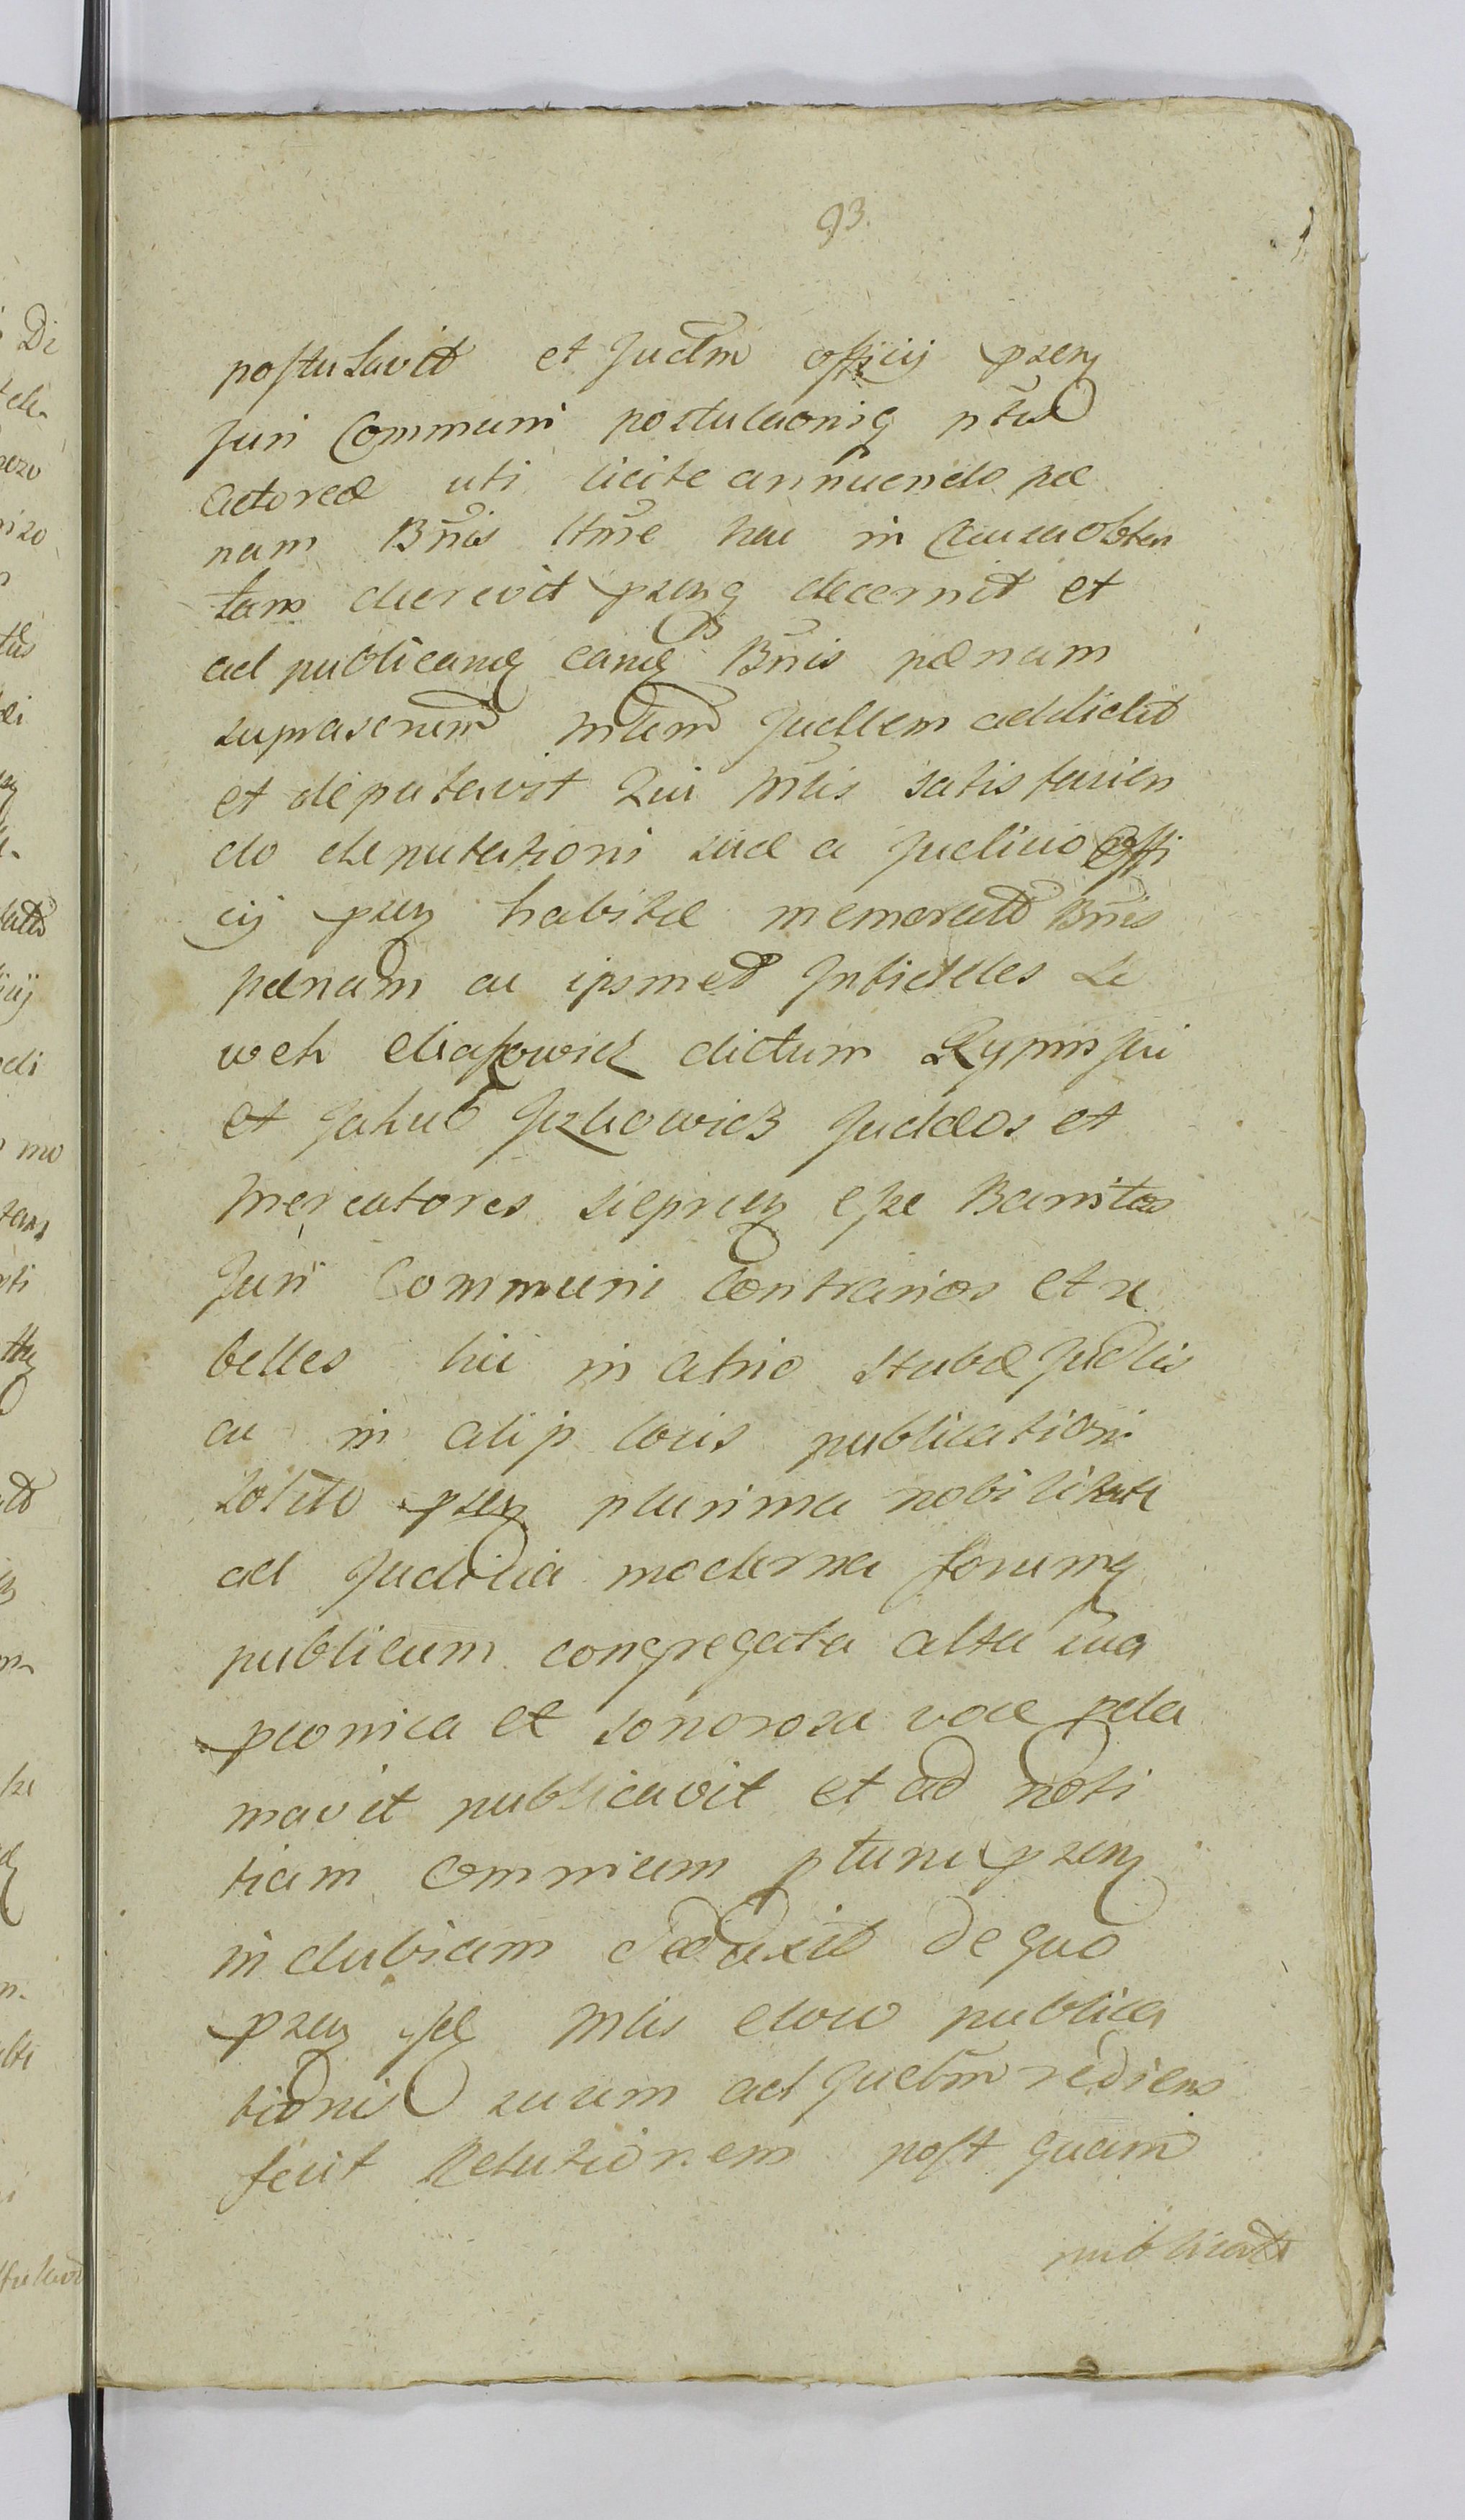 93.
postulavit et Judm officij pzenz
Juri Communi postulaonisq ptis
Actoreæ uti licite annuendo pæ
nam Bnis Hme hac in Causa obten
tam decrevit pzensq decernit et
ad publicandq eandq Bnis pænam
suprascrium Mlem Judlem addidit
et deputavit Qui Mlis satisfacien
do deputationi suæ a Judicio Offi
cij pzenz habitæ memorat Bnis
pænam ac ipsmet Infideles Le
wek eliaszowicz dictum
et Jakub Jckowicz Judæos et
Mercatores sieprcenz esse Bannitos
Juri Communi Contrarios et re
belles hic in Atrio Stubæ Judlis
ac in alijs locis publicationi
solito pzenz plurima nobilitate
ad Judicia moderna forumq
publicum congregata alta sua
pconica et sonorosa voce pcla
mavit publicavit et ad noti
tiam Omnium ptune pzenz
in dubiam dedduxit De quo
pzenz Mlis eloco publica
tionis suum ad Judm rediens
fecit Relationem post quam
publicat